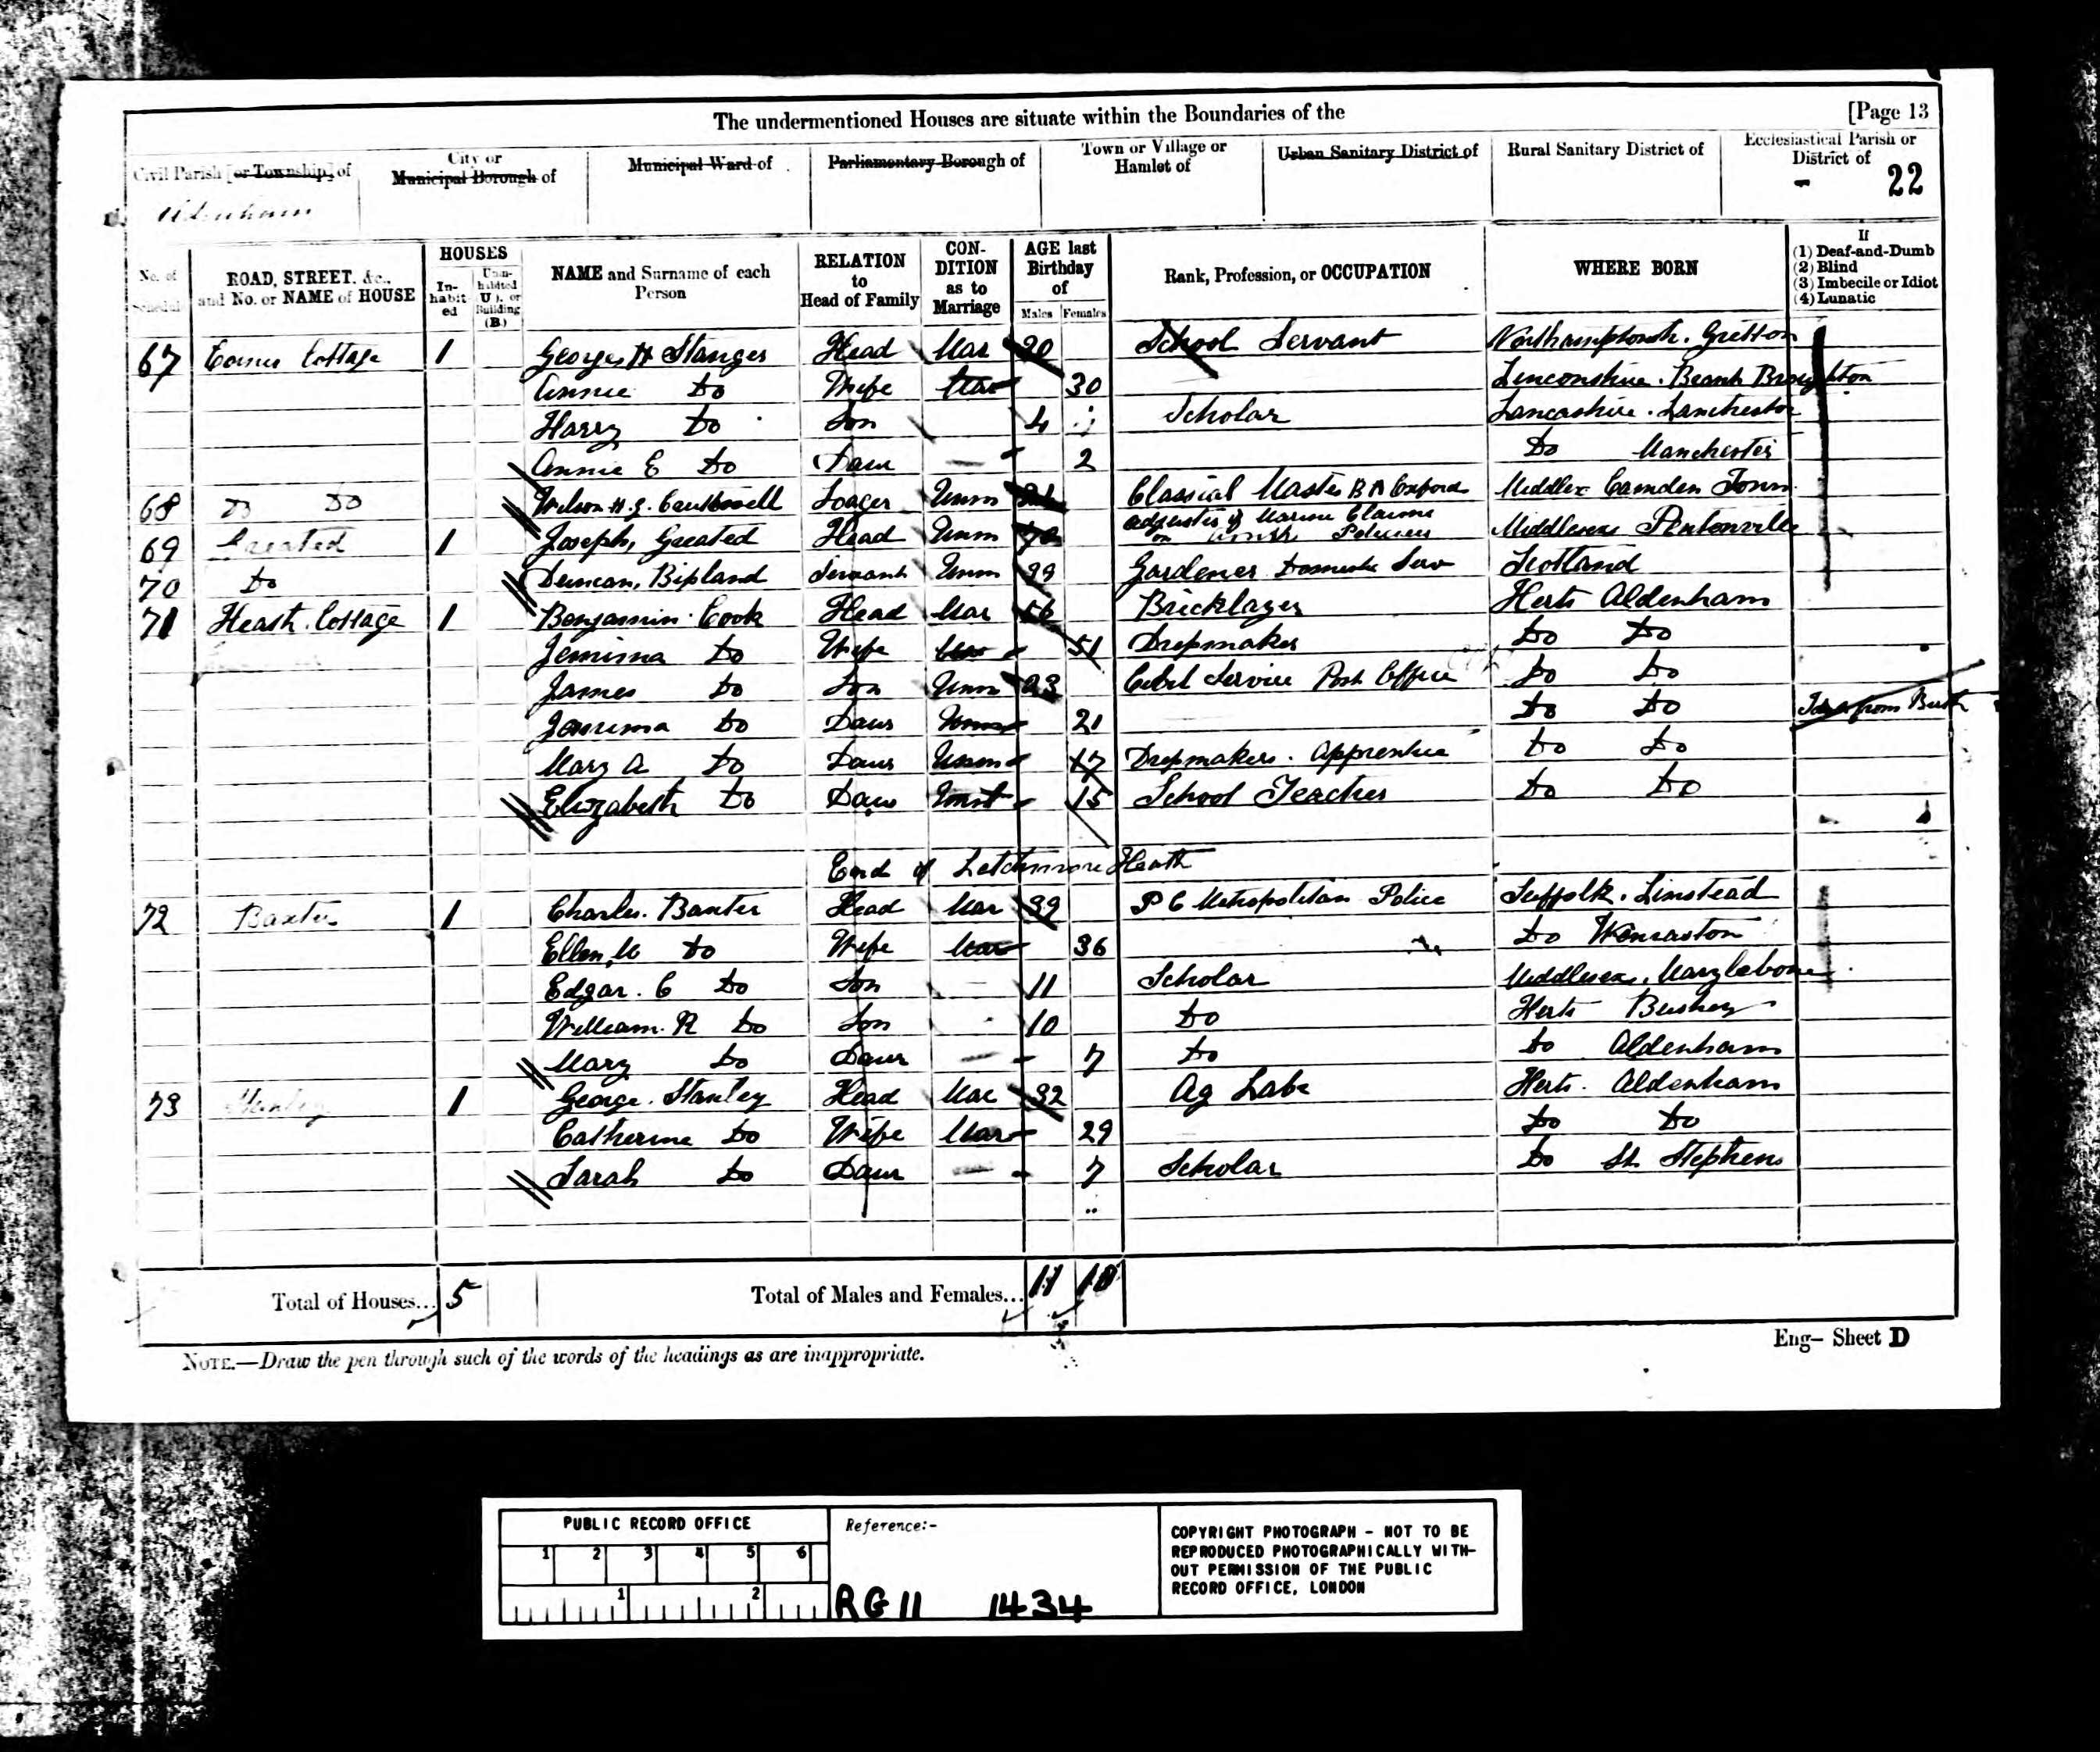 The undermentioned Houses are situate within the Boundaries of the [Page 13
Civil Parish [or Township] of
City or Municipal Borough of
Municipal Ward of
Parliamentary Borough of
Town or Village or Hamlet of
Urban Sanitary District of
Rural Sanitary District of
Ecclesiastical Parish or District of
Aldenham
22
No. of Schedule
ROAD, STREET, &c., and No. or NAME of HOUSE
HOUSES
In-habit-ed
Unin-habited (U), or Building (B)
NAME and Surname of each Person
RELATION to Head of Family
CON-DITION as to Marriage
AGE last Birthday of
Males Females
Rank, Profession, or OCCUPATION
WHERE BORN
If
(1) Deaf-and-Dumb
(2) Blind
(3) Imbecile or Idiot
(4) Lunatic
67 Cottage 1 George H Stanger Head Mar 30 School Servant Gretton
Annie Do Wife Mar 30 Lincolnshire. Brant Broughton
Harry Do Son 4 Scholar Lancashire.
Annie E Do Daur 2 Do Manchester
68 Do Do Wilson H.G. Lodger Unm Classical Master BA Oxford Middlex Camden Town
69 Greated 1 Joseph, Greated Head Unm Adjuster of Marine Claims on Policies Middlesex Pentonville
70 Do Duncan, Servant Unm 29 Gardener Domestic Serv Scotland
71 Heath Cottage 1 Benjamin Cook Head Mar 56 Bricklayer Herts Aldenham
Jemima Do Wife Mar 51 Dressmaker Do Do
James Do Son Unm 23 Civil Service Post Office Do Do
Jemima Do Daur Unm 21 Do Do from Birth
Mary A Do Daur Unm 17 Dressmakers. Apprentice Do Do
Elizabeth Do Daur 15 School Teacher Do Do
End of Letchmore Heath
72 Baxter 1 Charles. Baxter Head Mar 39 P C Metropolitan Police Suffolk. Linstead
Ellen M Do Wife Mar 36 Do
Edgar. C Do Son 11 Scholar Middlesex. Marylebone
William. R Do Son 10 Do Herts Bushey
Mary Do Daur 7 Do Do Aldenham
73 Stanley 1 George. Stanley Head Mar 32 Ag Labr Herts. Aldenham
Catherine Do Wife Mar 29 Do Do
Sarah Do Daur 7 Scholar Do St Stephens
Total of Houses... 5 Total of Males and Females... 11 10
Eng- Sheet D
NOTE.—Draw the pen through such of the words of the headings as are inappropriate.
PUBLIC RECORD OFFICE
1 2 3 4 5 6
1 2
Reference:-
RG 11 1434
COPYRIGHT PHOTOGRAPH - NOT TO BE
REPRODUCED PHOTOGRAPHICALLY WITH-
OUT PERMISSION OF THE PUBLIC
RECORD OFFICE, LONDON